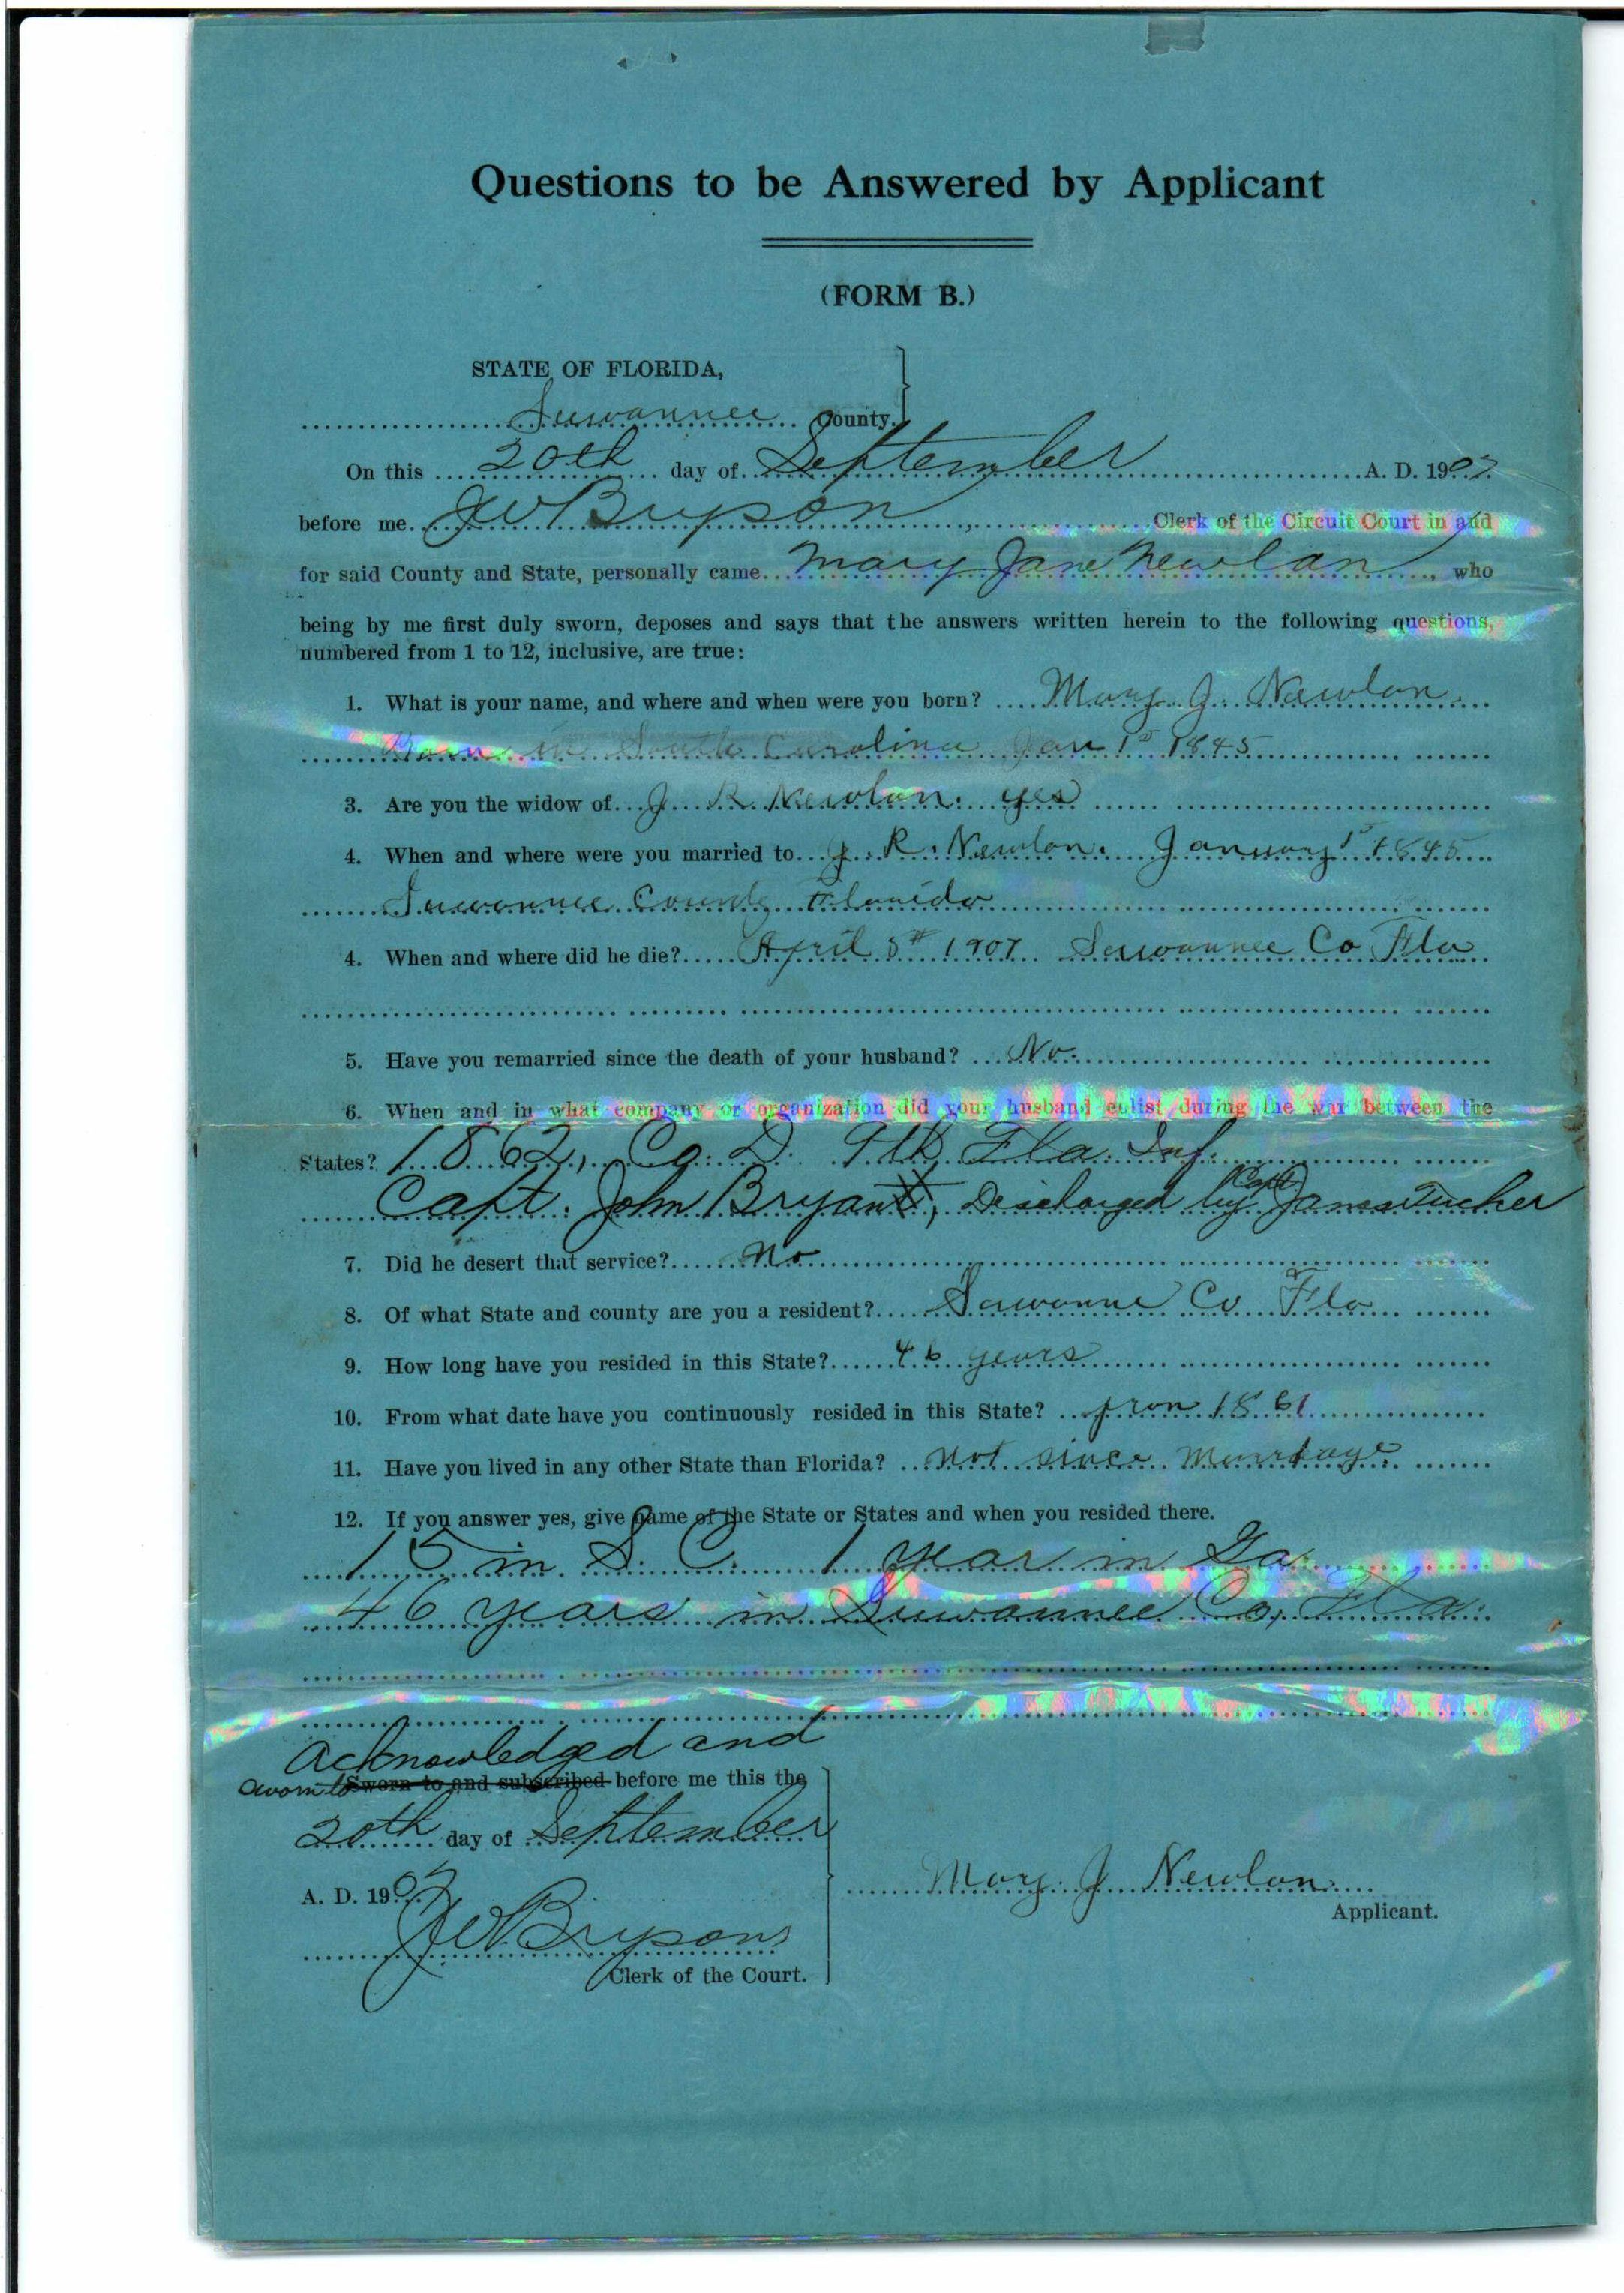 Questions to be Answered by Applicant
(FORM B.)
STATE OF FLORIDA,
Suwannee County.
On this 20th day of September A. D. 1907
before me JW Bryson, Clerk of the Circuit Court in and
for said County and State, personally came Mary Jane Newlan, who
being by me first duly sworn, deposes and says that the answers written herein to the following questions,
numbered from 1 to 12, inclusive, are true:
1. What is your name, and where and when were you born? Mary J. Newlan.
Born in South Carolina Jan 1st 1845
3. Are you the widow of J R Newlan. yes
4. When and where were you married to J. R. Newlan. January 1st 1845
Suwannee County Florida
4. When and where did he die? April 5th 1907 Suwannee Co Fla
5. Have you remarried since the death of your husband? No.
6. When and in what company or organization did your husband enlist during the war between the
States? 1862, Co. D. 9th Fla. Inf.
Capt. John Bryant, Discharged by Capt James Tucker
7. Did he desert that service? No
8. Of what State and county are you a resident? Suwanne Co Fla
9. How long have you resided in this State? 46 years
10. From what date have you continuously resided in this State? from 1861
11. Have you lived in any other State than Florida? not since Marriage.
12. If you answer yes, give name of the State or States and when you resided there.
15 in S. C. 1 year in Ga
46 years in Suwannee Co, Fla.
Acknowledged and
sworn to Sworn to and subscribed before me this the
20th day of September
A. D. 1907
Mary J Newlan.
Applicant.
JW Bryson
Clerk of the Court.